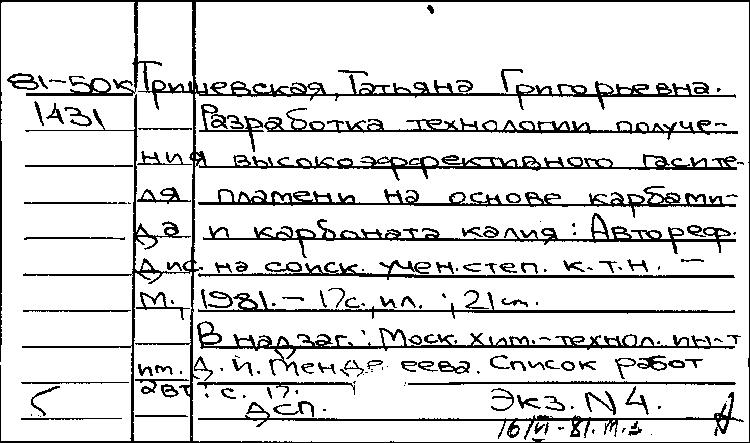 81-50к Тришевская, Татьяна Григорьевна.
1431 Разработка технологии получе-
ния высокоэффективного гасите-
ля пламени на основе карбами-
да и карбоната калия: Автореф.
дис. на соиск. учен. степ. к.т.н. -
М., 1981. - 17с., ил.; 21 см.
В надзаг.: Моск. хим.-технол. ин-т
им. Д.И. Менде еева. Список работ
авт.: с. 17.
5 ДСП. Экз. N 4.
16/VI-81.